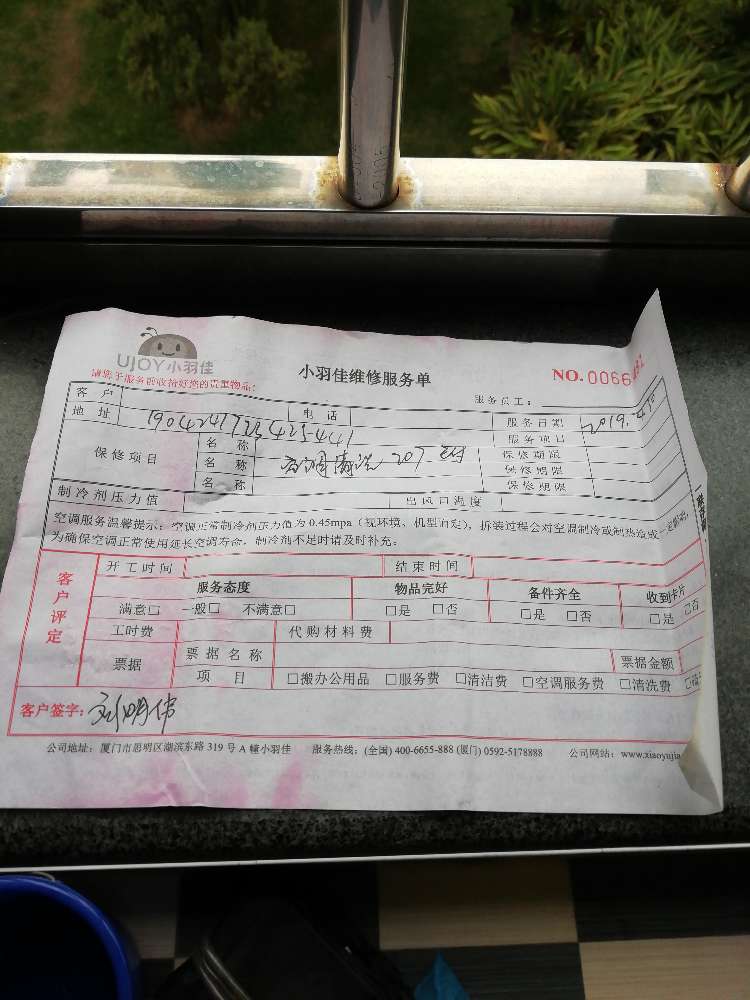 UJOY小羽佳
小羽佳维修服务单
NO.0066
请您于服务前收拾好您的贵重物品!
服务员工:
客户 电话 服务日期 2019.
地址 1904241723425441 服务项目
保修项目 名称 保修期限
名称 空调清洗 207 保修期限
名称 保修期限
制冷剂压力值 出风口温度
空调服务温馨提示: 空调正常制冷剂压力值为0.45mpa (视环境、机型而定), 拆装过程会对空调制冷或制热造成一定影响,
为确保空调正常使用延长空调寿命, 制冷剂不足时请及时补充。
客户评定
开工时间 结束时间
服务态度 物品完好 备件齐全 收到卡片
满意□ 一般□ 不满意□ □是 □否 □是 □否 □是 □否
工时费 代购材料费
票据 票据名称 票据金额
项目 □搬办公用品 □服务费 □清洁费 □空调服务费 □清洗费
客户签字: 刘明伟
公司地址: 厦门市思明区湖滨东路319号A幢小羽佳 服务热线: (全国) 400-6655-888 (厦门) 0592-5178888 公司网站: www.xiaoyujia